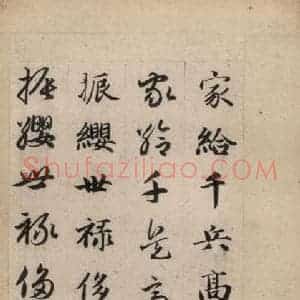 家給千兵髙
家給千兵髙
振纓世禄侈
振纓世禄侈
Shufaziliao.com